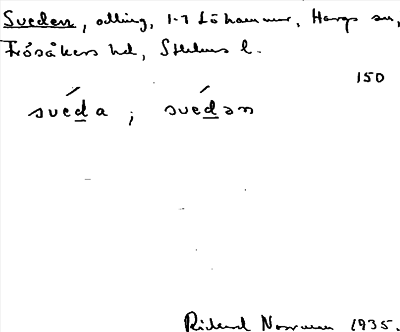 Sveden, odling, 1-7 Löhammar, Hargs sn,
Frösåkers hd, Sthlms l.
150
svéda ; svédən
Rickard Norrman 1935.